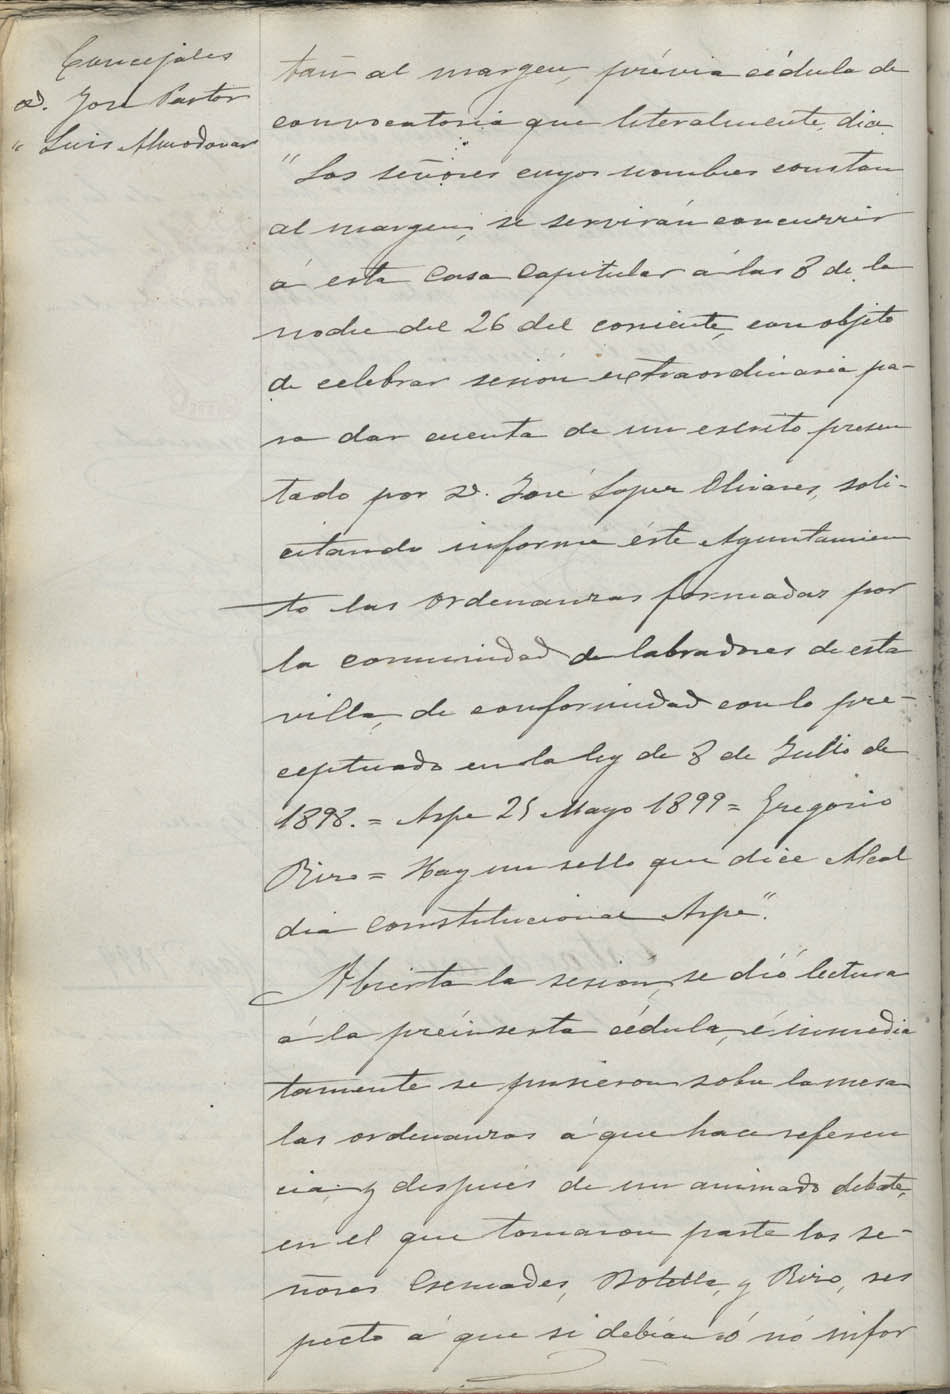 Concejales
D. José Pastor
" Luis Almodovar
tan al margen, prévia cédula de
convocatoria que literalmente, dia
"Los señores cuyos nombres constan
al margen, se servirán concurrir
á esta Casa Capitular á las 8 de la
noche del 26 del corriente, con objeto
de celebrar sesión extraordinaria pa-
ra dar cuenta de un escrito presen
tado por D. José Lopez Olivares, soli-
citando informe éste Ayuntamien
to las ordenanzas formadas por
la comunidad de labradores de esta
villa, de conformidad con lo pre-
ceptuado en la ley de 8 de Julio de
1898. = Aspe 25 Mayo 1899 = Gregorio
Rizo = Hay un sello que dice Alcal
dia constitucional Aspe".
Abierta la sesion, se dió lectura
á la preinserta cédula, é inmedia
tamente se pusieron sobre la mesa
las ordenanzas á que hace referen
cia, y después de un animado debate,
en el que tomaron parte los se-
ñores Cremades, Botella, y Rizo, res
pecto á que si debían ó nó infor